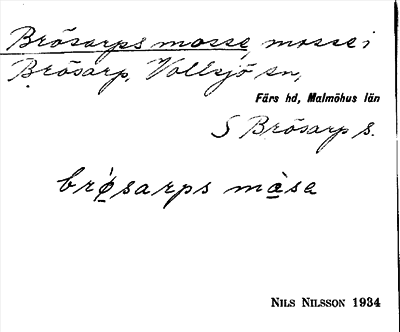 Brösarps mosse, mosse i
Brösarp, Vollsjö sn,
Färs hd, Malmöhus län
S Brösarp s.
brǿsarps màsa
NILS NILSSON 1934